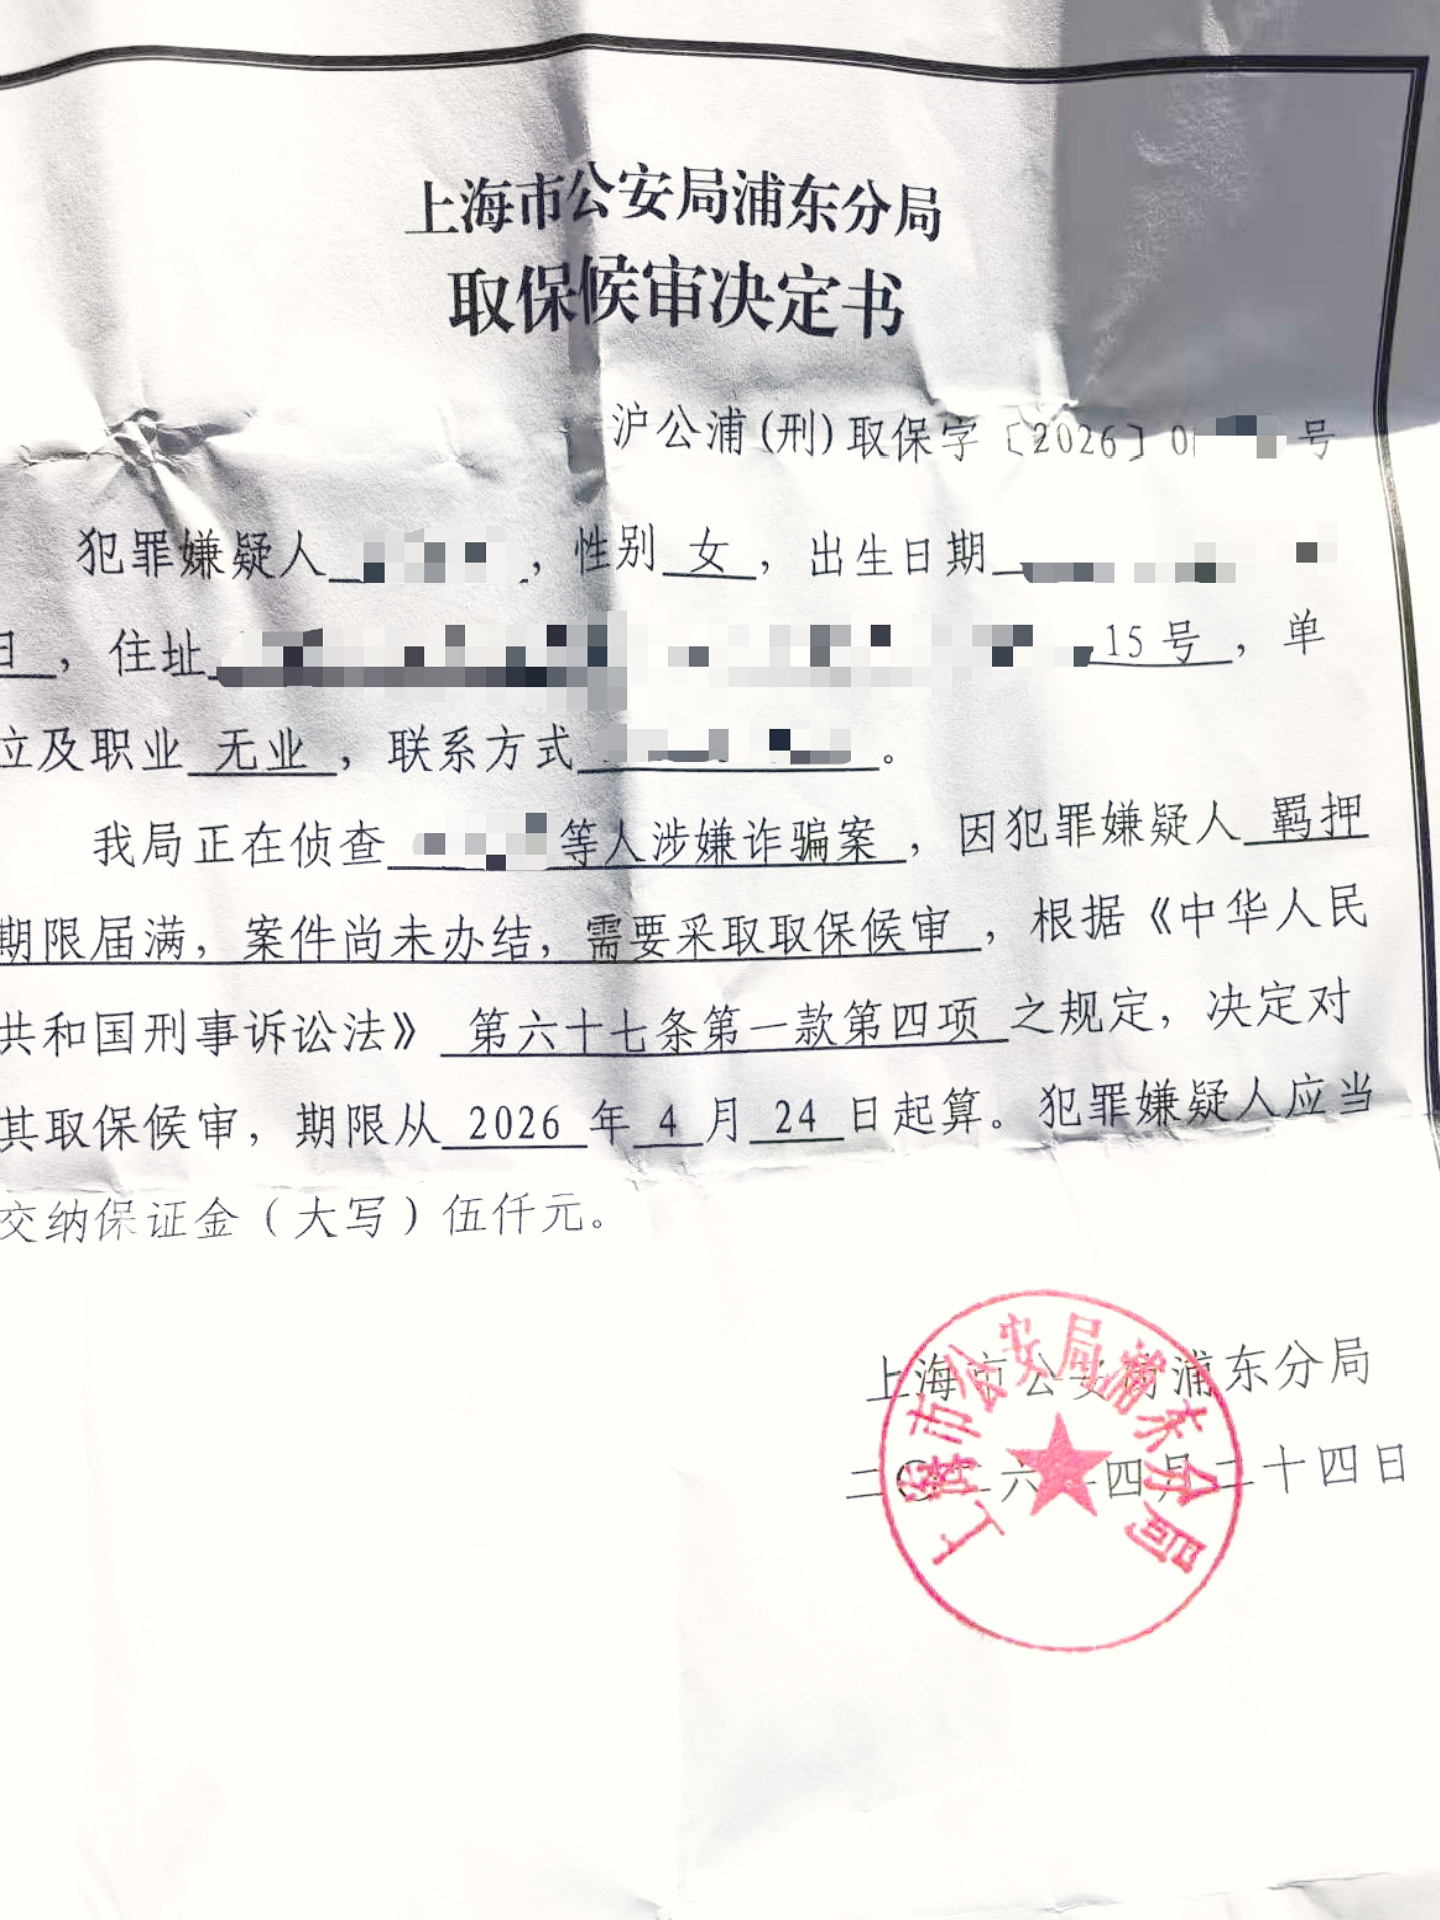 上海市公安局浦东分局
取保候审决定书
沪公浦(刑)取保字〔2026〕0 号
犯罪嫌疑人 ，性别 女 ，出生日期
日，住址 15号，单
位及职业 无业 ，联系方式 。
我局正在侦查 等人涉嫌诈骗案 ，因犯罪嫌疑人 羁押
期限届满，案件尚未办结，需要采取取保候审 ，根据《中华人民
共和国刑事诉讼法》 第六十七条第一款第四项 之规定，决定对
其取保候审，期限从 2026 年 4 月 24 日起算。犯罪嫌疑人应当
交纳保证金（大写）伍仟元。
上海市公安局浦东分局
二〇二六年四月二十四日
上海市公安局浦东分局